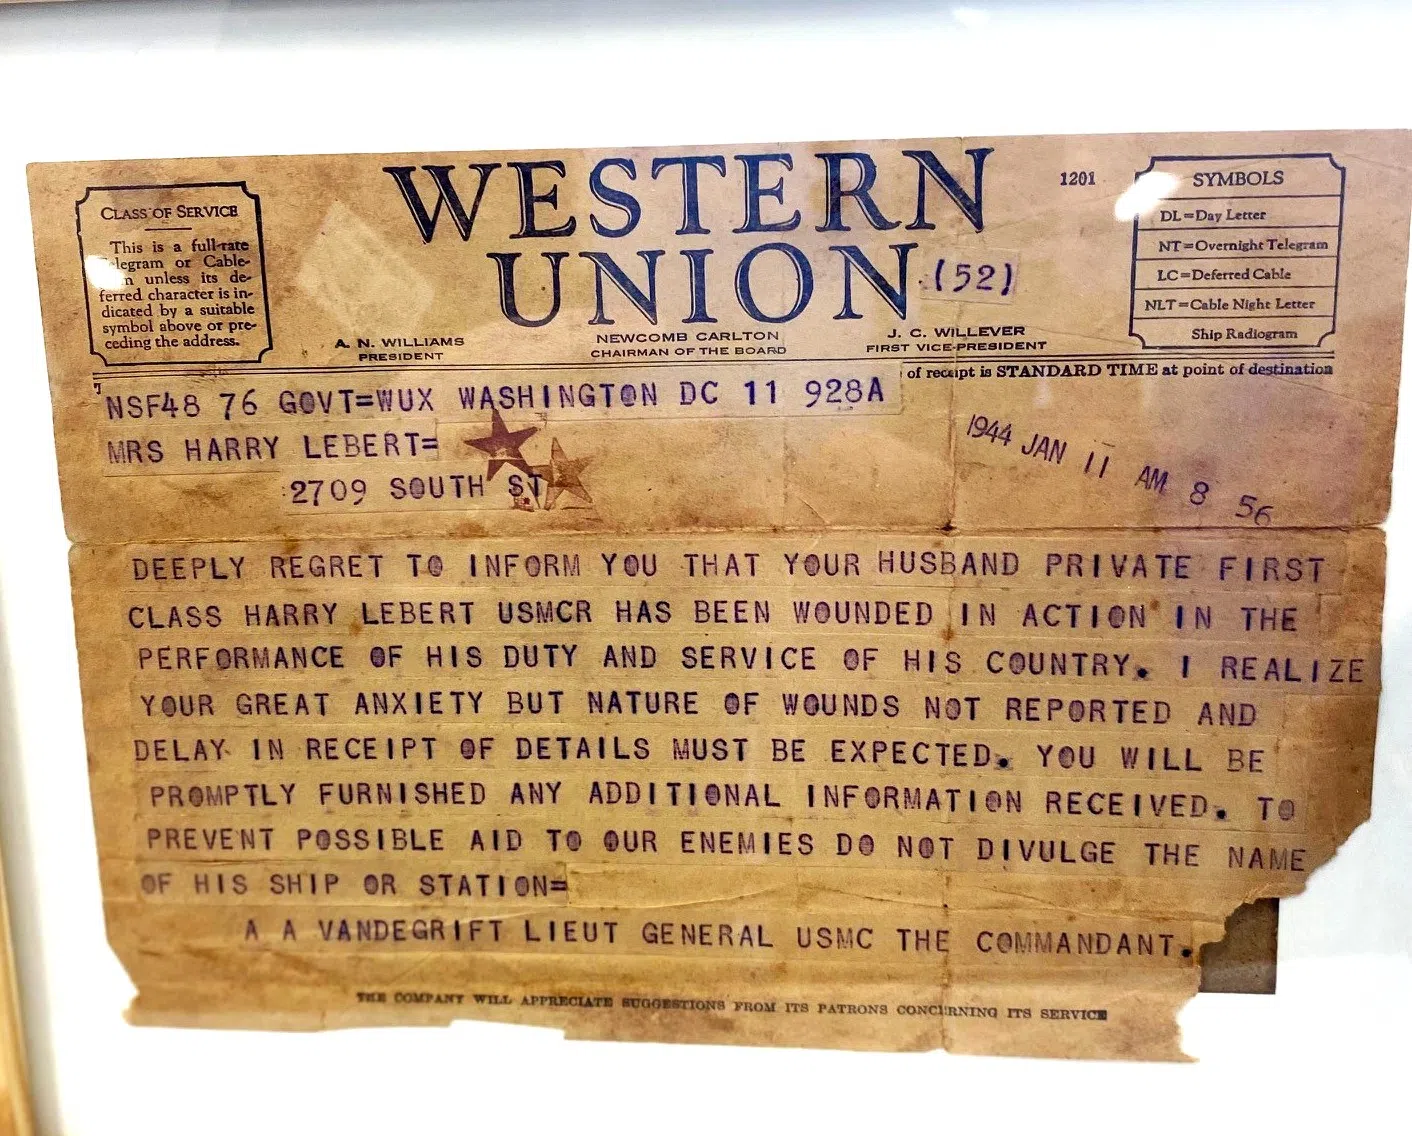 WESTERN
UNION
(52)
1201
CLASS OF SERVICE
This is a full-rate
Telegram or Cable-
unless its de-
ferred character is in-
dicated by a suitable
symbol above or pre-
ceding the address.
SYMBOLS
DL=Day Letter
NT=Overnight Telegram
LC=Deferred Cable
NLT=Cable Night Letter
Ship Radiogram
A. N. WILLIAMS
PRESIDENT
NEWCOMB CARLTON
CHAIRMAN OF THE BOARD
J. C. WILLEVER
FIRST VICE-PRESIDENT
of receipt is STANDARD TIME at point of destination
NSF48 76 GOVT=WUX WASHINGTON DC 11 928A
MRS HARRY LEBERT=
2709 SOUTH ST
1944 JAN 11 AM 8 56
DEEPLY REGRET TO INFORM YOU THAT YOUR HUSBAND PRIVATE FIRST
CLASS HARRY LEBERT USMCR HAS BEEN WOUNDED IN ACTION IN THE
PERFORMANCE OF HIS DUTY AND SERVICE OF HIS COUNTRY. I REALIZE
YOUR GREAT ANXIETY BUT NATURE OF WOUNDS NOT REPORTED AND
DELAY IN RECEIPT OF DETAILS MUST BE EXPECTED. YOU WILL BE
PROMPTLY FURNISHED ANY ADDITIONAL INFORMATION RECEIVED. TO
PREVENT POSSIBLE AID TO OUR ENEMIES DO NOT DIVULGE THE NAME
OF HIS SHIP OR STATION=
A A VANDEGRIFT LIEUT GENERAL USMC THE COMMANDANT.
THE COMPANY WILL APPRECIATE SUGGESTIONS FROM ITS PATRONS CONCERNING ITS SERVICE